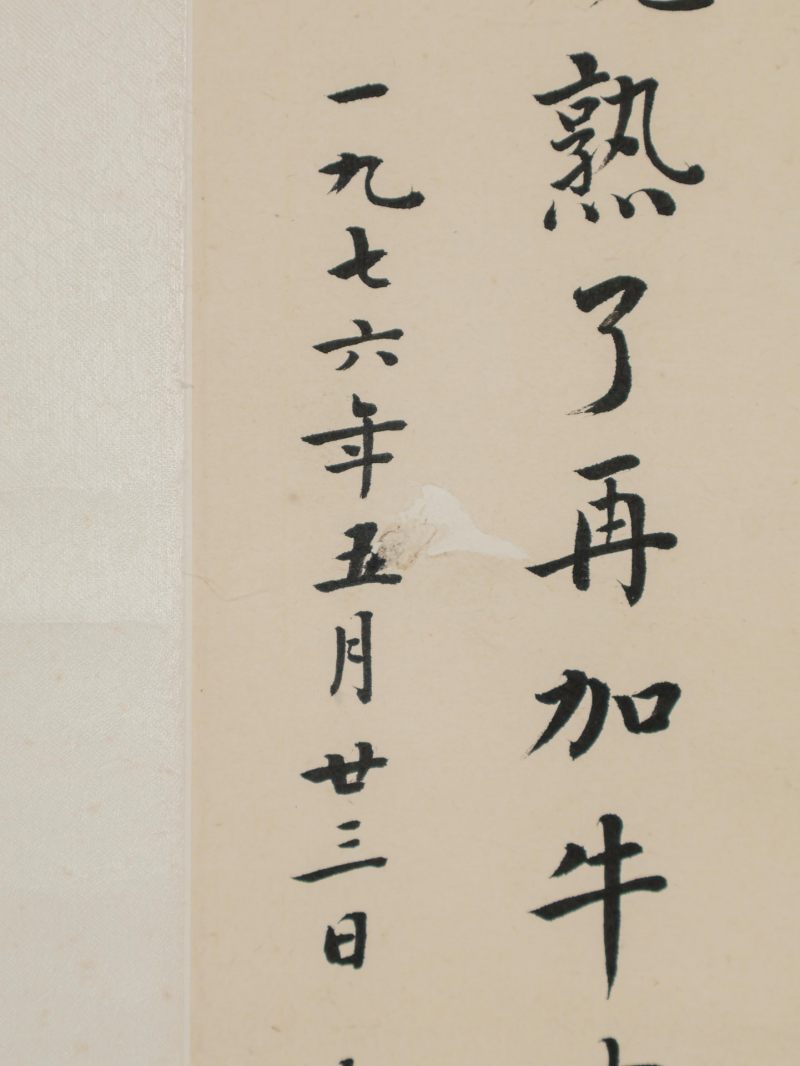 熟了再加牛
一九七六年五月廿三日